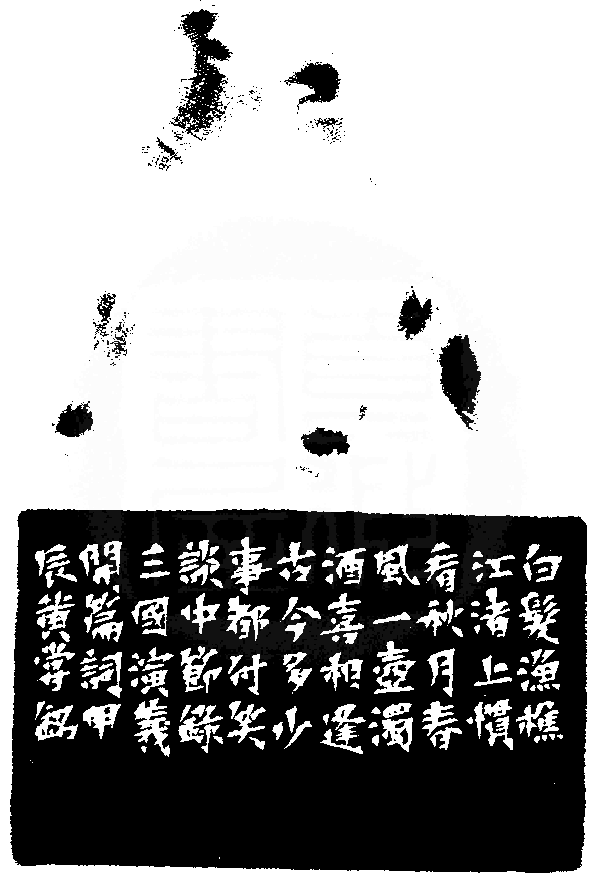 白髮漁樵
江渚上慣
看秋月春
風一壺濁
酒喜相逢
古今多少
事都付笑
談中節錄
三國演義
開篇詞甲
辰黃嘗銘